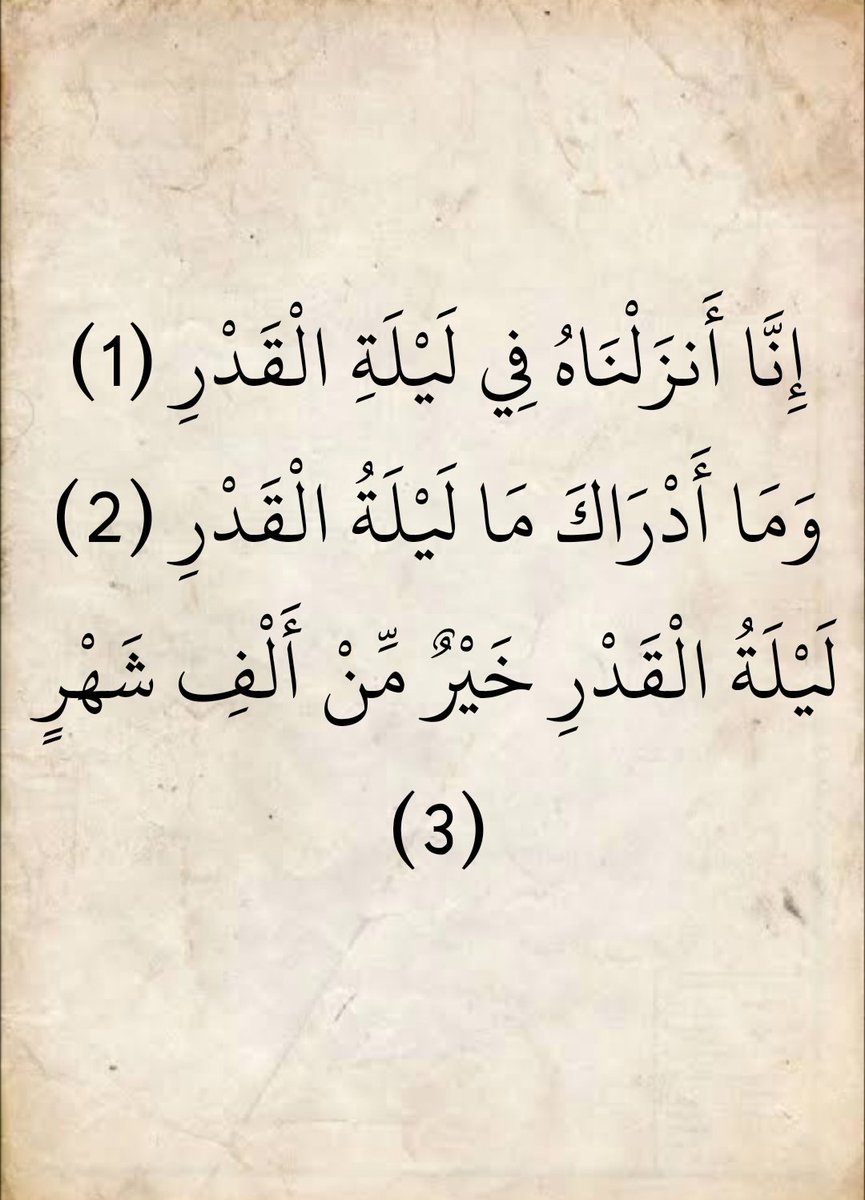 إِنَّا أَنزَلْنَاهُ فِي لَيْلَةِ الْقَدْرِ (1)
وَمَا أَدْرَاكَ مَا لَيْلَةُ الْقَدْرِ (2)
لَيْلَةُ الْقَدْرِ خَيْرٌ مِّنْ أَلْفِ شَهْرٍ
(3)